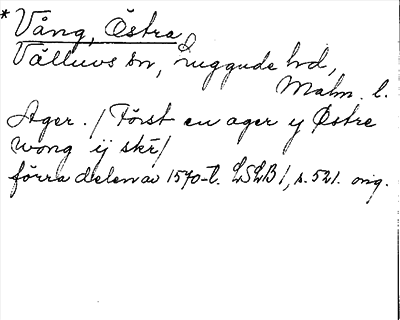 * Vång, Östra
Välluvs sn, Luggude hd,
Malm. l.
Ager. / Först en ager y Østre
wong ij skr/
förra delen av 1570-t. LSLB 1, s. 521. orig.